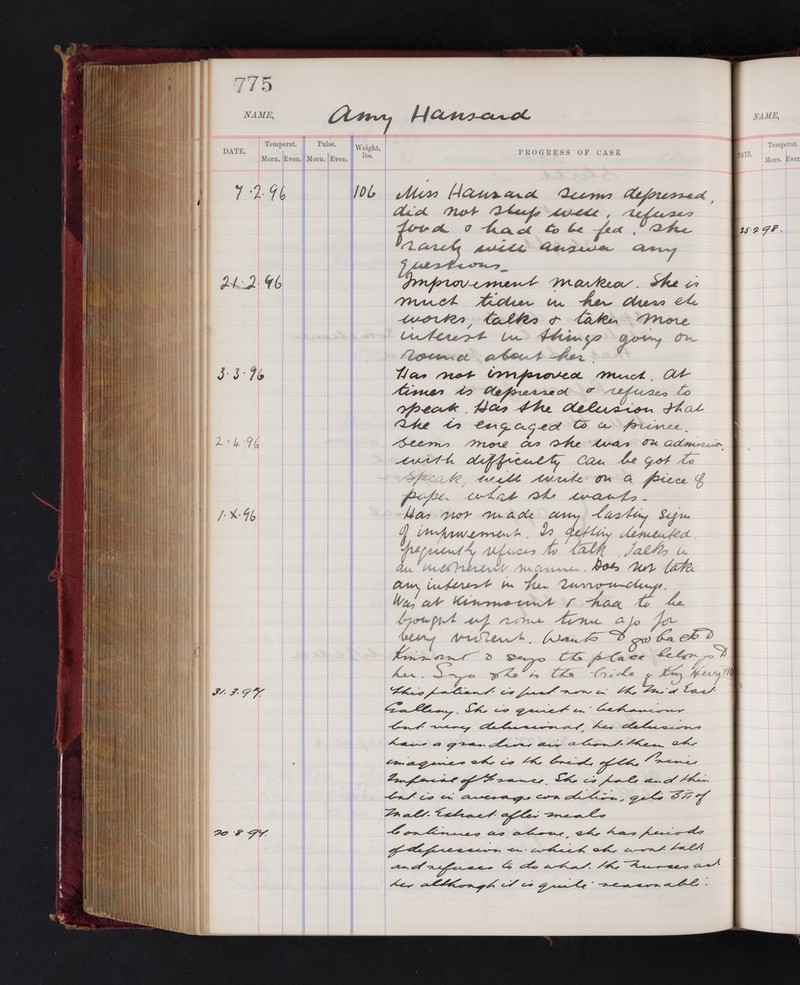 775
NAME, Amy Hansard
NAME,
DATE. Temperat. Pulse. Weight, lbs. PROGRESS OF CASE
Morn. Even. Morn. Even.
DATE. Temperat.
Morn. Even
7·2·96 106 Miss Hansard seems depressed,
did not sleep well, refuses
food & had to be fed, she
25·2·98.
rarely will answer any
questions_
21·2·96 Improvement marked. She is
much tidier in her dress etc
works, talks & takes more
interest in things going on
round about her.
3·3·96 Has not improved much. At
times is depressed & refuses to
speak. Has the delusion that
she is engaged to a prince.
2·4·96 Seems more as she was on admission.
with difficulty can be got to
speak, will write on a piece of
paper what she wants_
1·X·96 Has not made any lasting signs
of improvement. Is getting demented.
frequently refuses to talk. Talks in
an incoherent manner. Does not take
any interest in her surroundings.
Was at Kinmount & had to be
brought up some time ago for
being violent. Wants to go back to
Kinmount & says the place belongs to
her. Says she is the bride of King Henry
31·3·97. This patient is just now in the Mid East
Gallery. She is quiet in behaviour
but very delusional, her delusions
have a grandiose air about them she
imagines she is the bride of the Prince
Imperial of France. She is pale and thin
but is in average condition, gets ʒii of
Malt Extract after meals
20·8·97. Continues as above, she has periods
of depression in which she wont talk
and refuses to do what the nurses ask
her although it is quite reasonable.